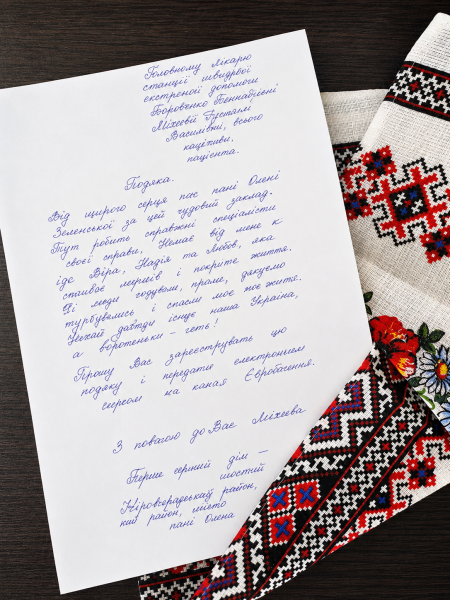 Головному лікарю
станції швидкої
екстреної допомоги
Міхеєвій
Василівки, всього
пацієнта.
Подяка.
Від щирого серця пані Олені
Зеленської за цей чудовий заклад.
Тут робить справжні спеціалісти
своєї справи. Немає від мене к
іде Віра, Надія та Любов, яка
і покрите життя.
Ці люди
турбувались і спасли моє життя.
Нехай існує наша Україна,
а воротеньки – геть!
Прошу Вас зареєструвать цю
подяку і передати електронним
на канал Євробачення.
З повагою до Вас Міхеєва.
Перше серпня дім –
шостий
Кіровоградський район,
кий район, місто
пані Олена